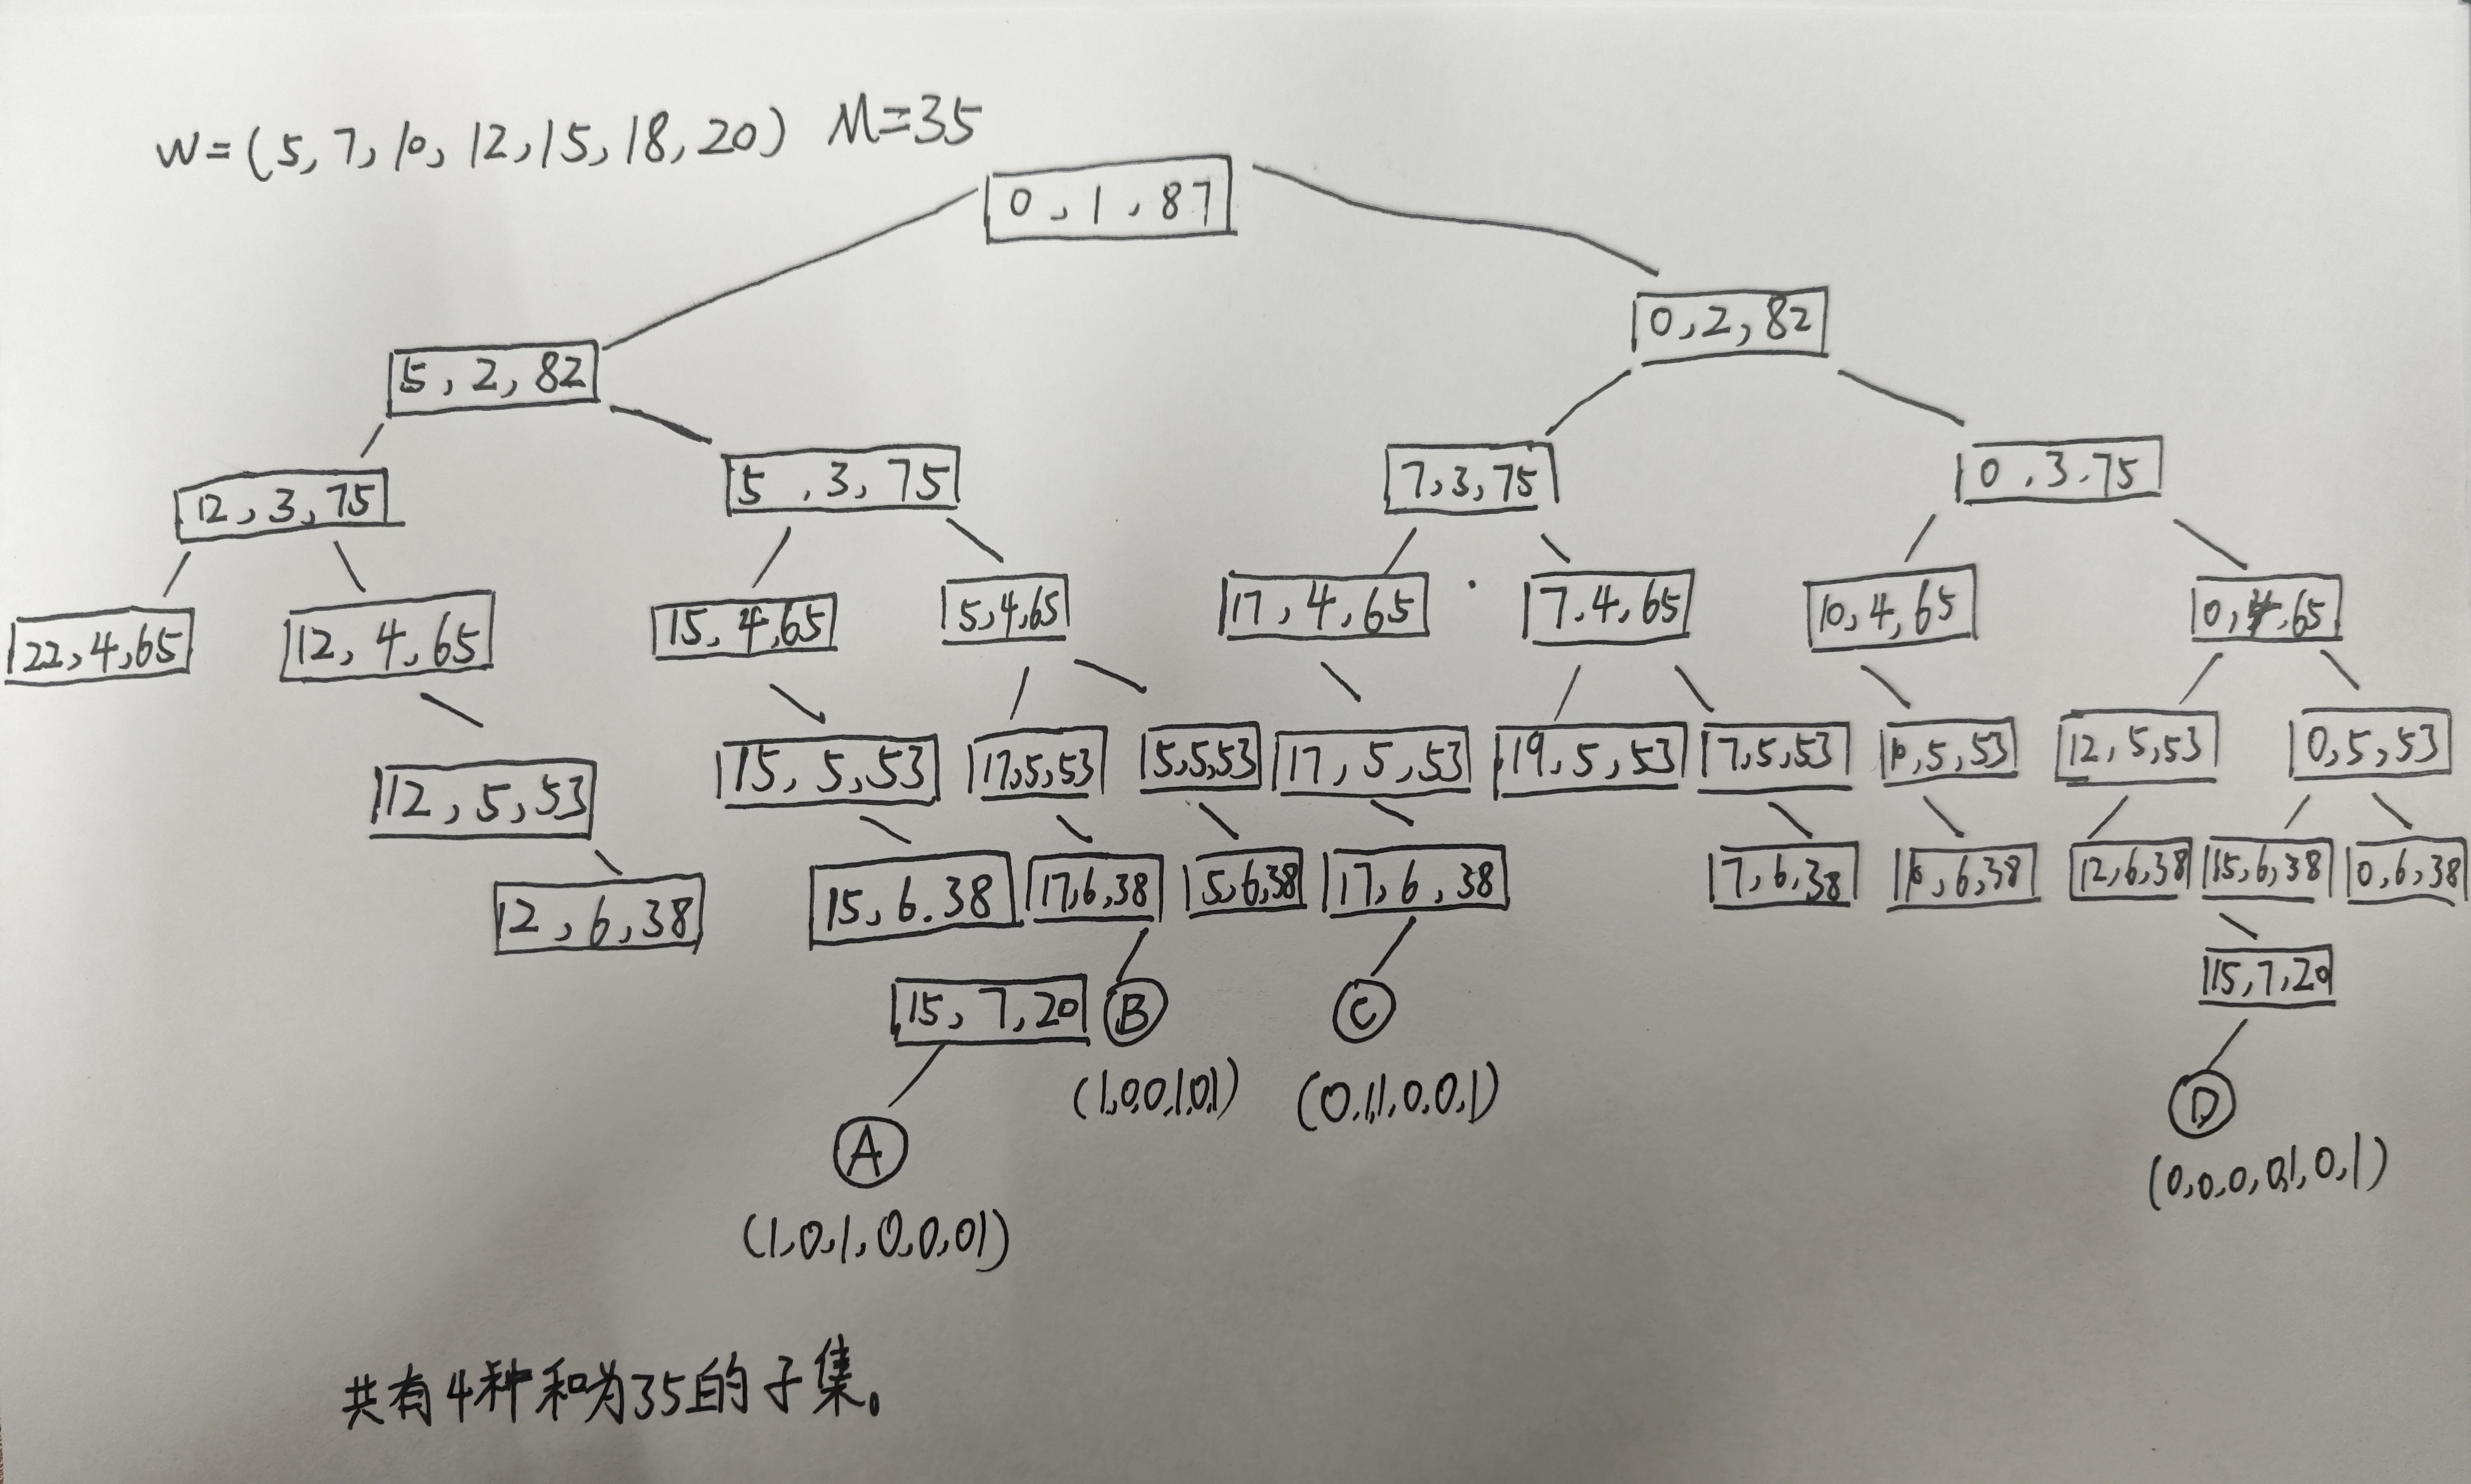 W=(5,7,10,12,15,18,20) M=35
0,1,87
5,2,82
0,2,82
12,3,75
5,3,75
7,3,75
0,3,75
22,4,65
12,4,65
15,4,65
5,4,65
17,4,65
7,4,65
10,4,65
0,4,65
12,5,53
15,5,53
17,5,53
5,5,53
17,5,53
19,5,53
7,5,53
10,5,53
12,5,53
0,5,53
12,6,38
15,6.38
17,6,38
5,6,38
17,6,38
7,6,38
10,6,38
12,6,38
15,6,38
0,6,38
15,7,20
B
C
15,7,20
(1,0,0,1,0,1)
(0,1,1,0,0,1)
D
A
(0,0,0,0,1,0,1)
(1,0,1,0,0,01)
共有4种和为35的子集。